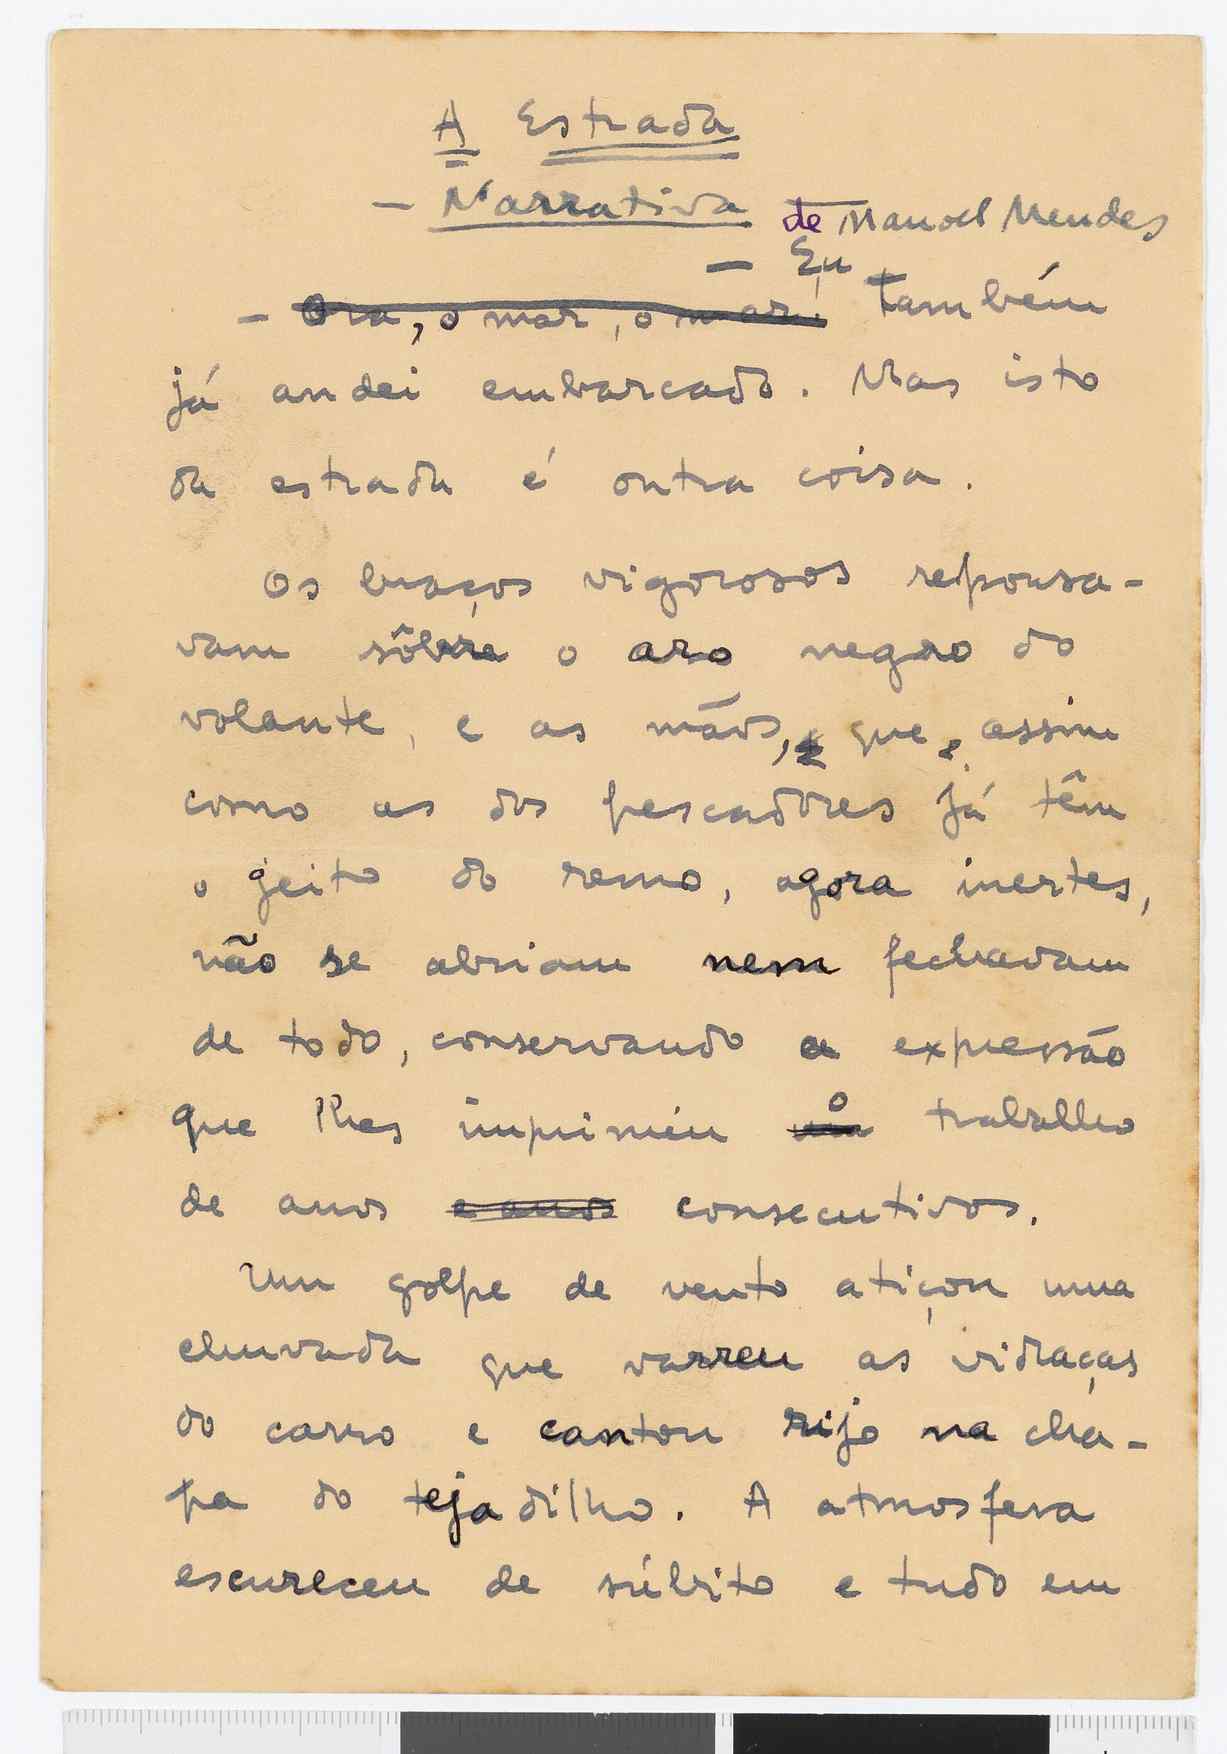 A Estrada
— Narrativa de Manoel Mendes
— Eu
— Ora, o mar, o mar! também
já andei embarcado. Mas isto
da estrada é outra coisa.
Os braços vigorosos repousa-
vam sôbre o aro negro do
volante, e as mãos, que, assim
como as dos pescadores já têm
o geito do remo, agora inertes,
não se abriam nem fechavam
de todo, conservando a expressão
que lhes imprimiu o trabalho
de anos e anos consecutivos.
Um golpe de vento atiçou uma
chuvada que varreu as vidraças
do carro e cantou rijo na cha-
pa do tejadilho. A atmosfera
escureceu de súbito e tudo em